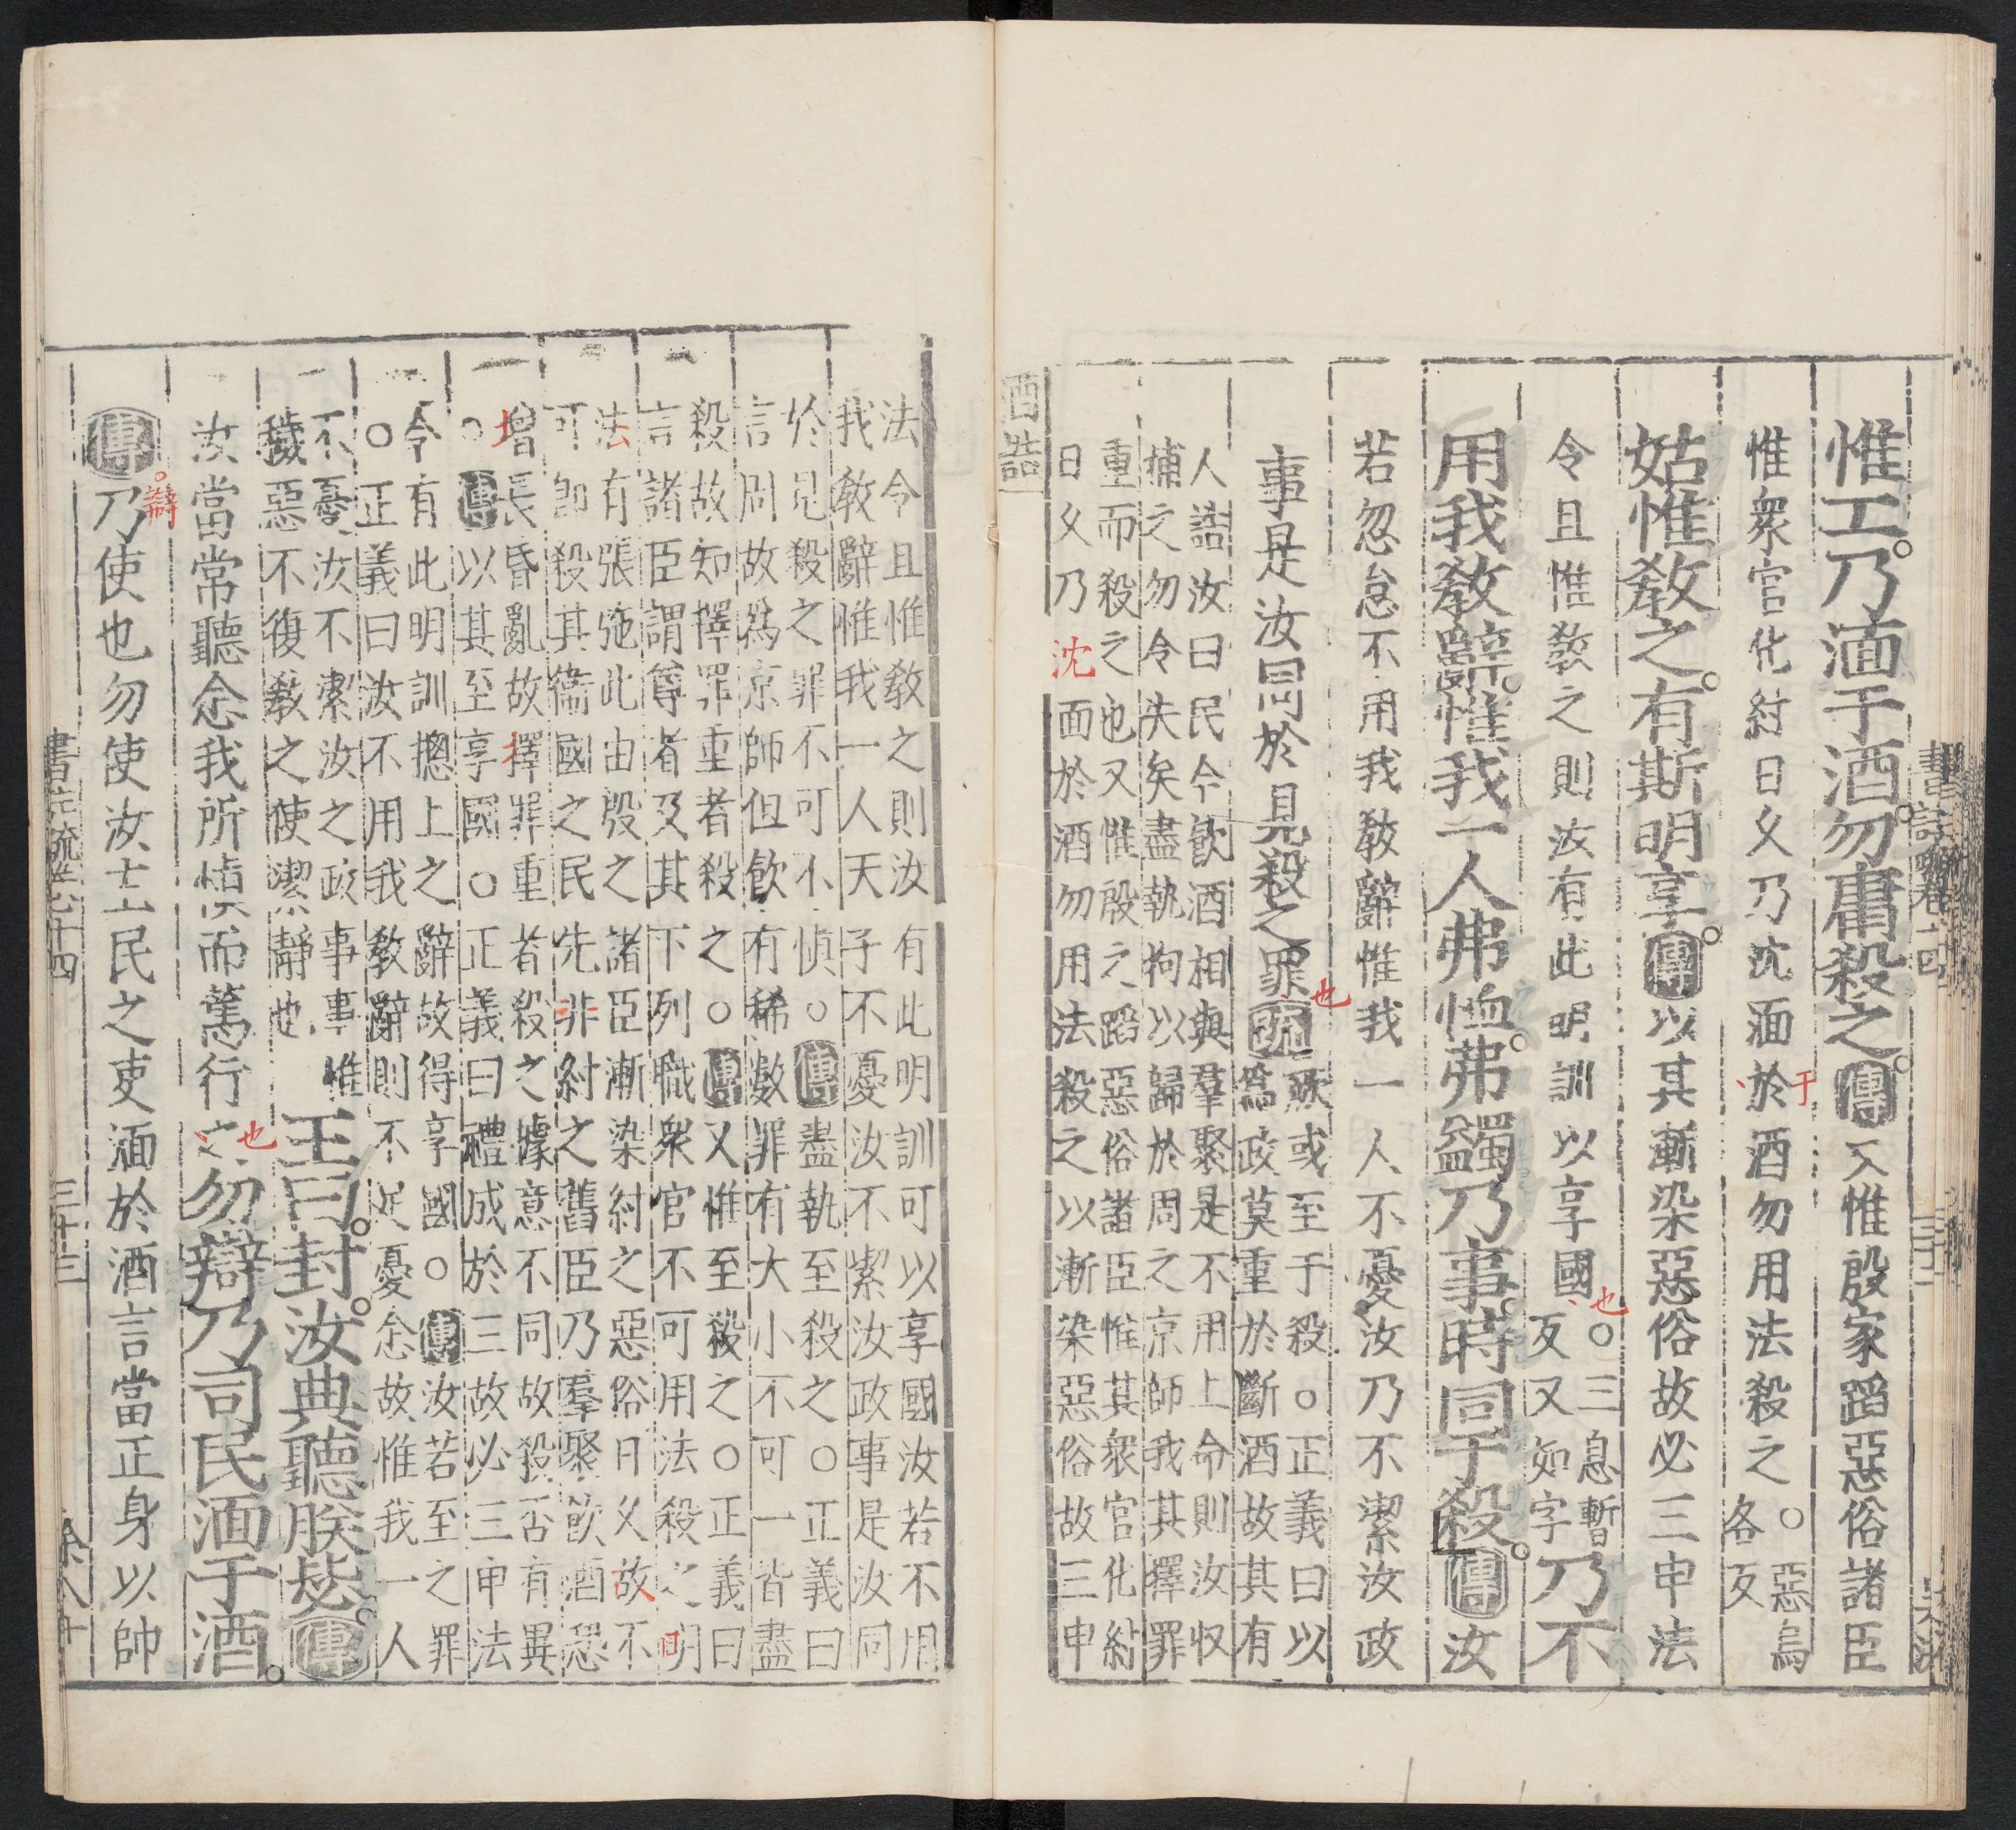 惟工乃湎于酒勿庸殺之傳又惟殷家蹈惡俗諸臣
惟衆官化紂日久乃沈湎於酒勿用法殺之○惡烏
各反
姑惟敎之有斯明享傳以其漸染惡俗故必三申法
令且惟敎之則汝有此明訓以享國○三息暫
反又如字
乃不
用我敎辭惟我一人弗恤弗蠲乃事時同于殺傳汝
若忽怠不用我敎辭惟我一人不憂汝乃不潔汝政
事是汝同於見殺之罪疏厥或至于殺○正義曰以
爲政莫重於斷酒故其有
人誥汝曰民今飮酒相與羣聚是不用上命則汝収
捕之勿令失矣盡執拘以歸於周之京師我其擇罪
重而殺之也又惟殷之蹈惡俗諸臣惟其衆官化紂
日久乃沈面於酒勿用法殺之以漸染惡俗故三申
酒誥
法令且惟敎之則汝有此明訓可以享國汝若不用
我敎辭惟我一人天子不憂汝不絜汝政事是汝同
於見殺之罪不可不愼○傳盡執至殺之○正義曰
言周故爲京師但飮有稀數罪有大小不可一皆盡
殺故知擇罪重者殺之○傳又惟至殺之○正義曰
言諸臣謂尊者及其下列職衆官不可用法殺之明
法有張弛此由殷之諸臣漸染紂之惡俗日久故不
可卽殺其衞國之民先非紂之舊臣乃羣聚飮酒恐
增長昏亂故擇罪重者殺之據意不同故殺否有異
○傳以其至享國○正義曰禮成於三故必三申法
令有此明訓摠上之辭故得享國○傳汝若至之罪
○正義曰汝不用我敎辭則不足憂念故惟我一人
不憂汝不絜汝之政事事惟
穢惡不復敎之使潔靜也
王曰封汝典聽朕毖傳
汝當常聽念我所愼而篤行之勿辯乃司民湎于酒
傳乃使也勿使汝主民之吏湎於酒言當正身以帥
三十三
也
于
也
也
辯